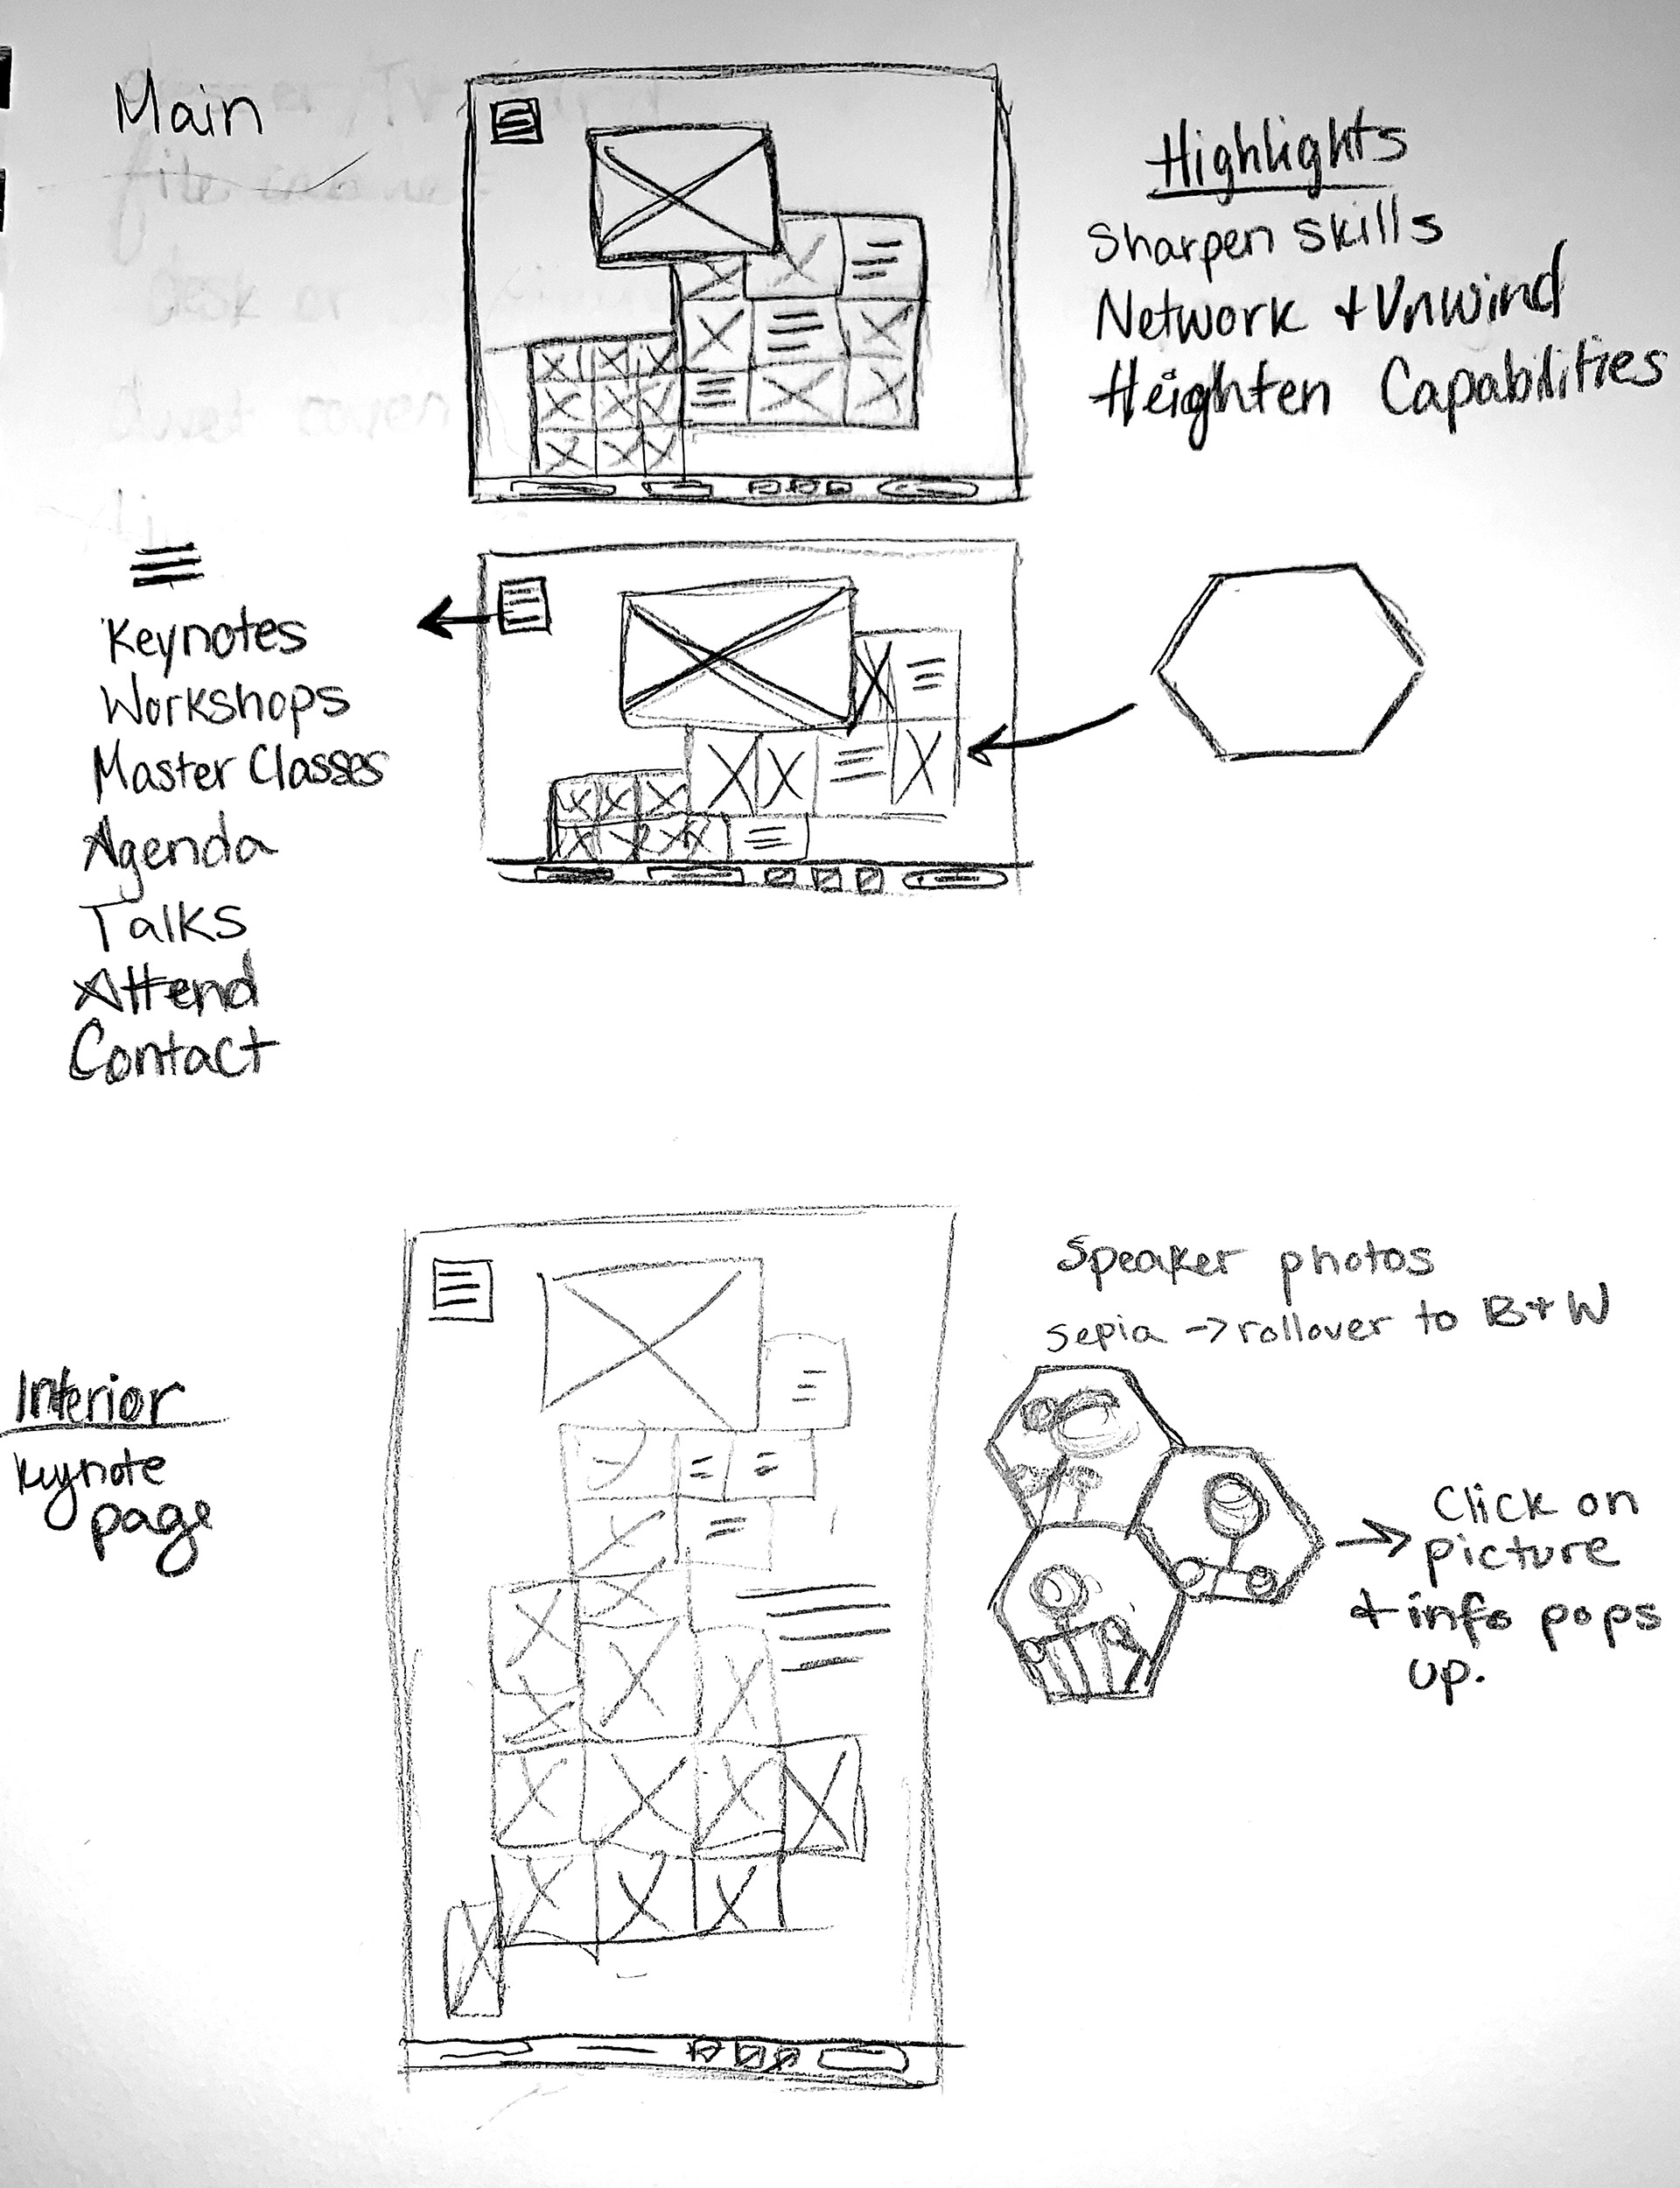 Main
Highlights
Sharpen skills
Network + Unwind
Heighten Capabilities
Keynotes
Workshops
Master Classes
Agenda
Talks
Attend
Contact
Speaker photos
sepia → rollover to B + W
Interior
Keynote
page
→ Click on
picture
+ info pops
up.